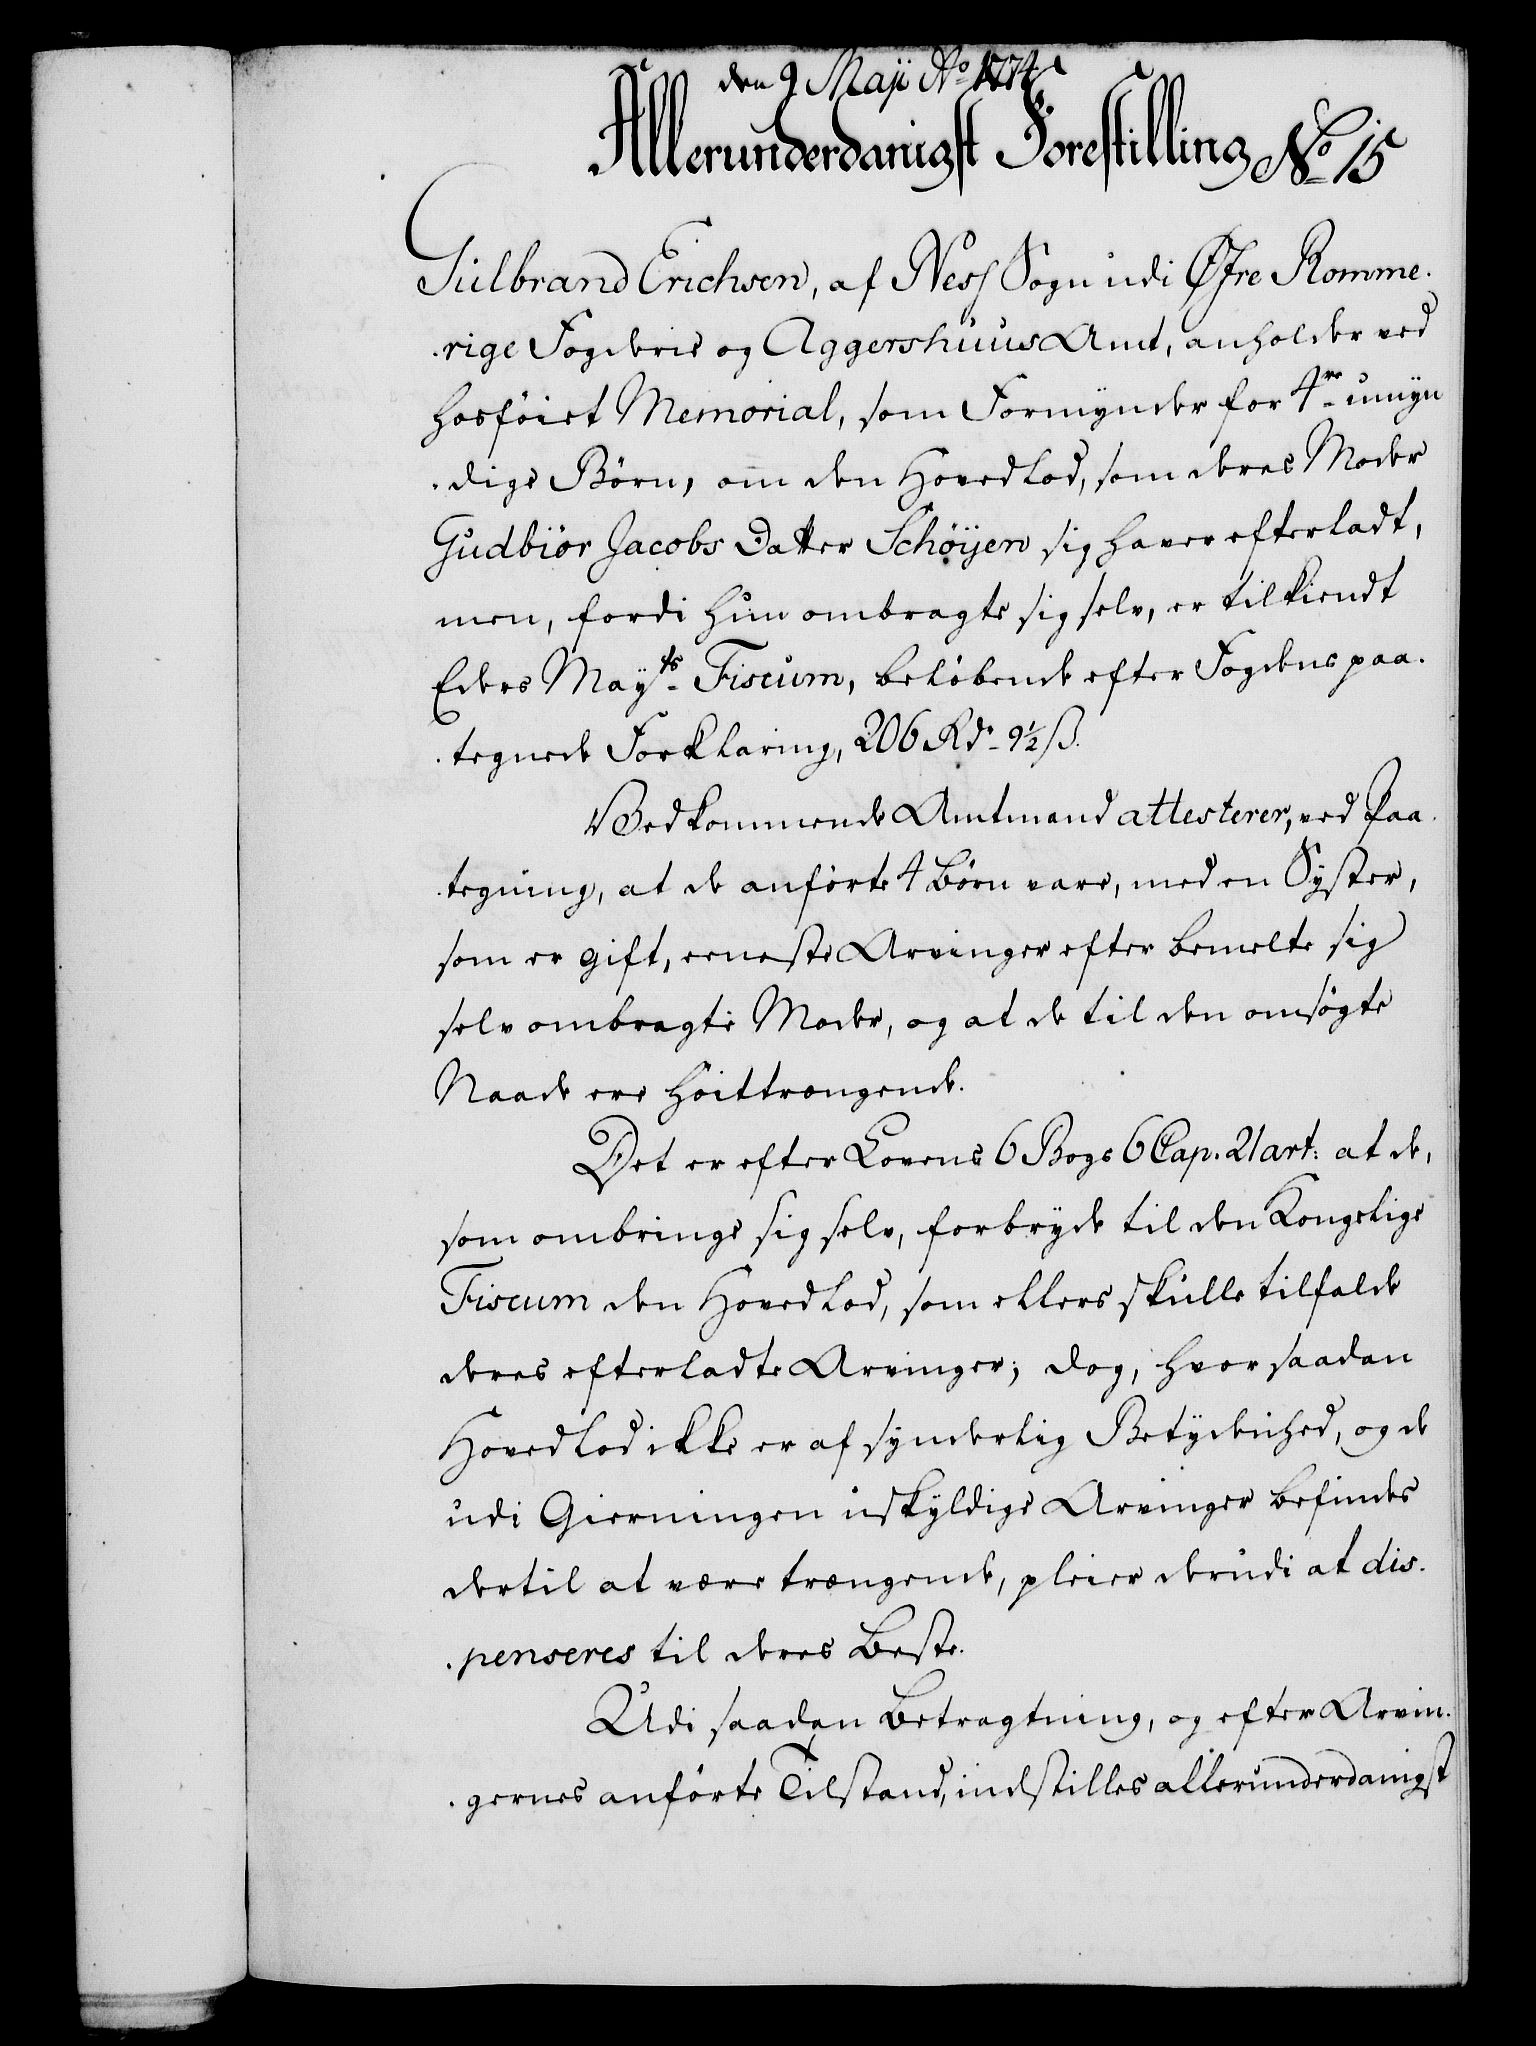 den 9 Maji Ao 1774
Allerunderdanigst Forestilling No 15
Gulbrand Erichsen, af Ness Sogn udi Øfre Romme-
-rige Fogderie og Aggershuus Amt, anholder ved
hosføiet Memorial, som Formynder for 4re umyn
-dige Børn, om den Hovedlod, som deres Moder
Gudbiør Jacobs Datter Schøijen sig haver efterladt,
men, fordi hun ombragte sig selv, er tilkiendt
Eders Mayts Fiscum, beløbende efter Fogdens paa-
-tegnede Forklaring, 206 Rdr 9½ ß.
Vedkommende Amtmand attesterer, ved Paa-
-tegning, at de anførte 4 Børn vare, med en Syster,
som er gift, eeneste Arvinger efter bemelte sig
selv ombragte Moder, og at de til den omsøgte
Naade ere høittrængende.
Det er efter Lovens 6 Bogs 6 Cap. 21 art: at de,
som ombringe sig selv, forbryde til den Kongelige
Fiscum den Hovedlod, som ellers skulle tilfalde
deres efterladte Arvinger; dog, hvor saadan
Hovedlod ikke er af synderlig Betydenhed, og de
udi Gierningen uskyldige Arvinger befindes
dertil at være trængende, pleier derudi at dis-
-penseres til deres Beste.
Udi saadan Betragtning, og efter Arvin-
-gernes anførte Tilstand, indstilles allerunderdanigst